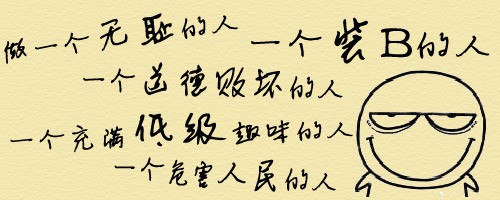 做一个无耻的人
一个装B的人
一个道德败坏的人
一个充满低级趣味的人
一个危害人民的人